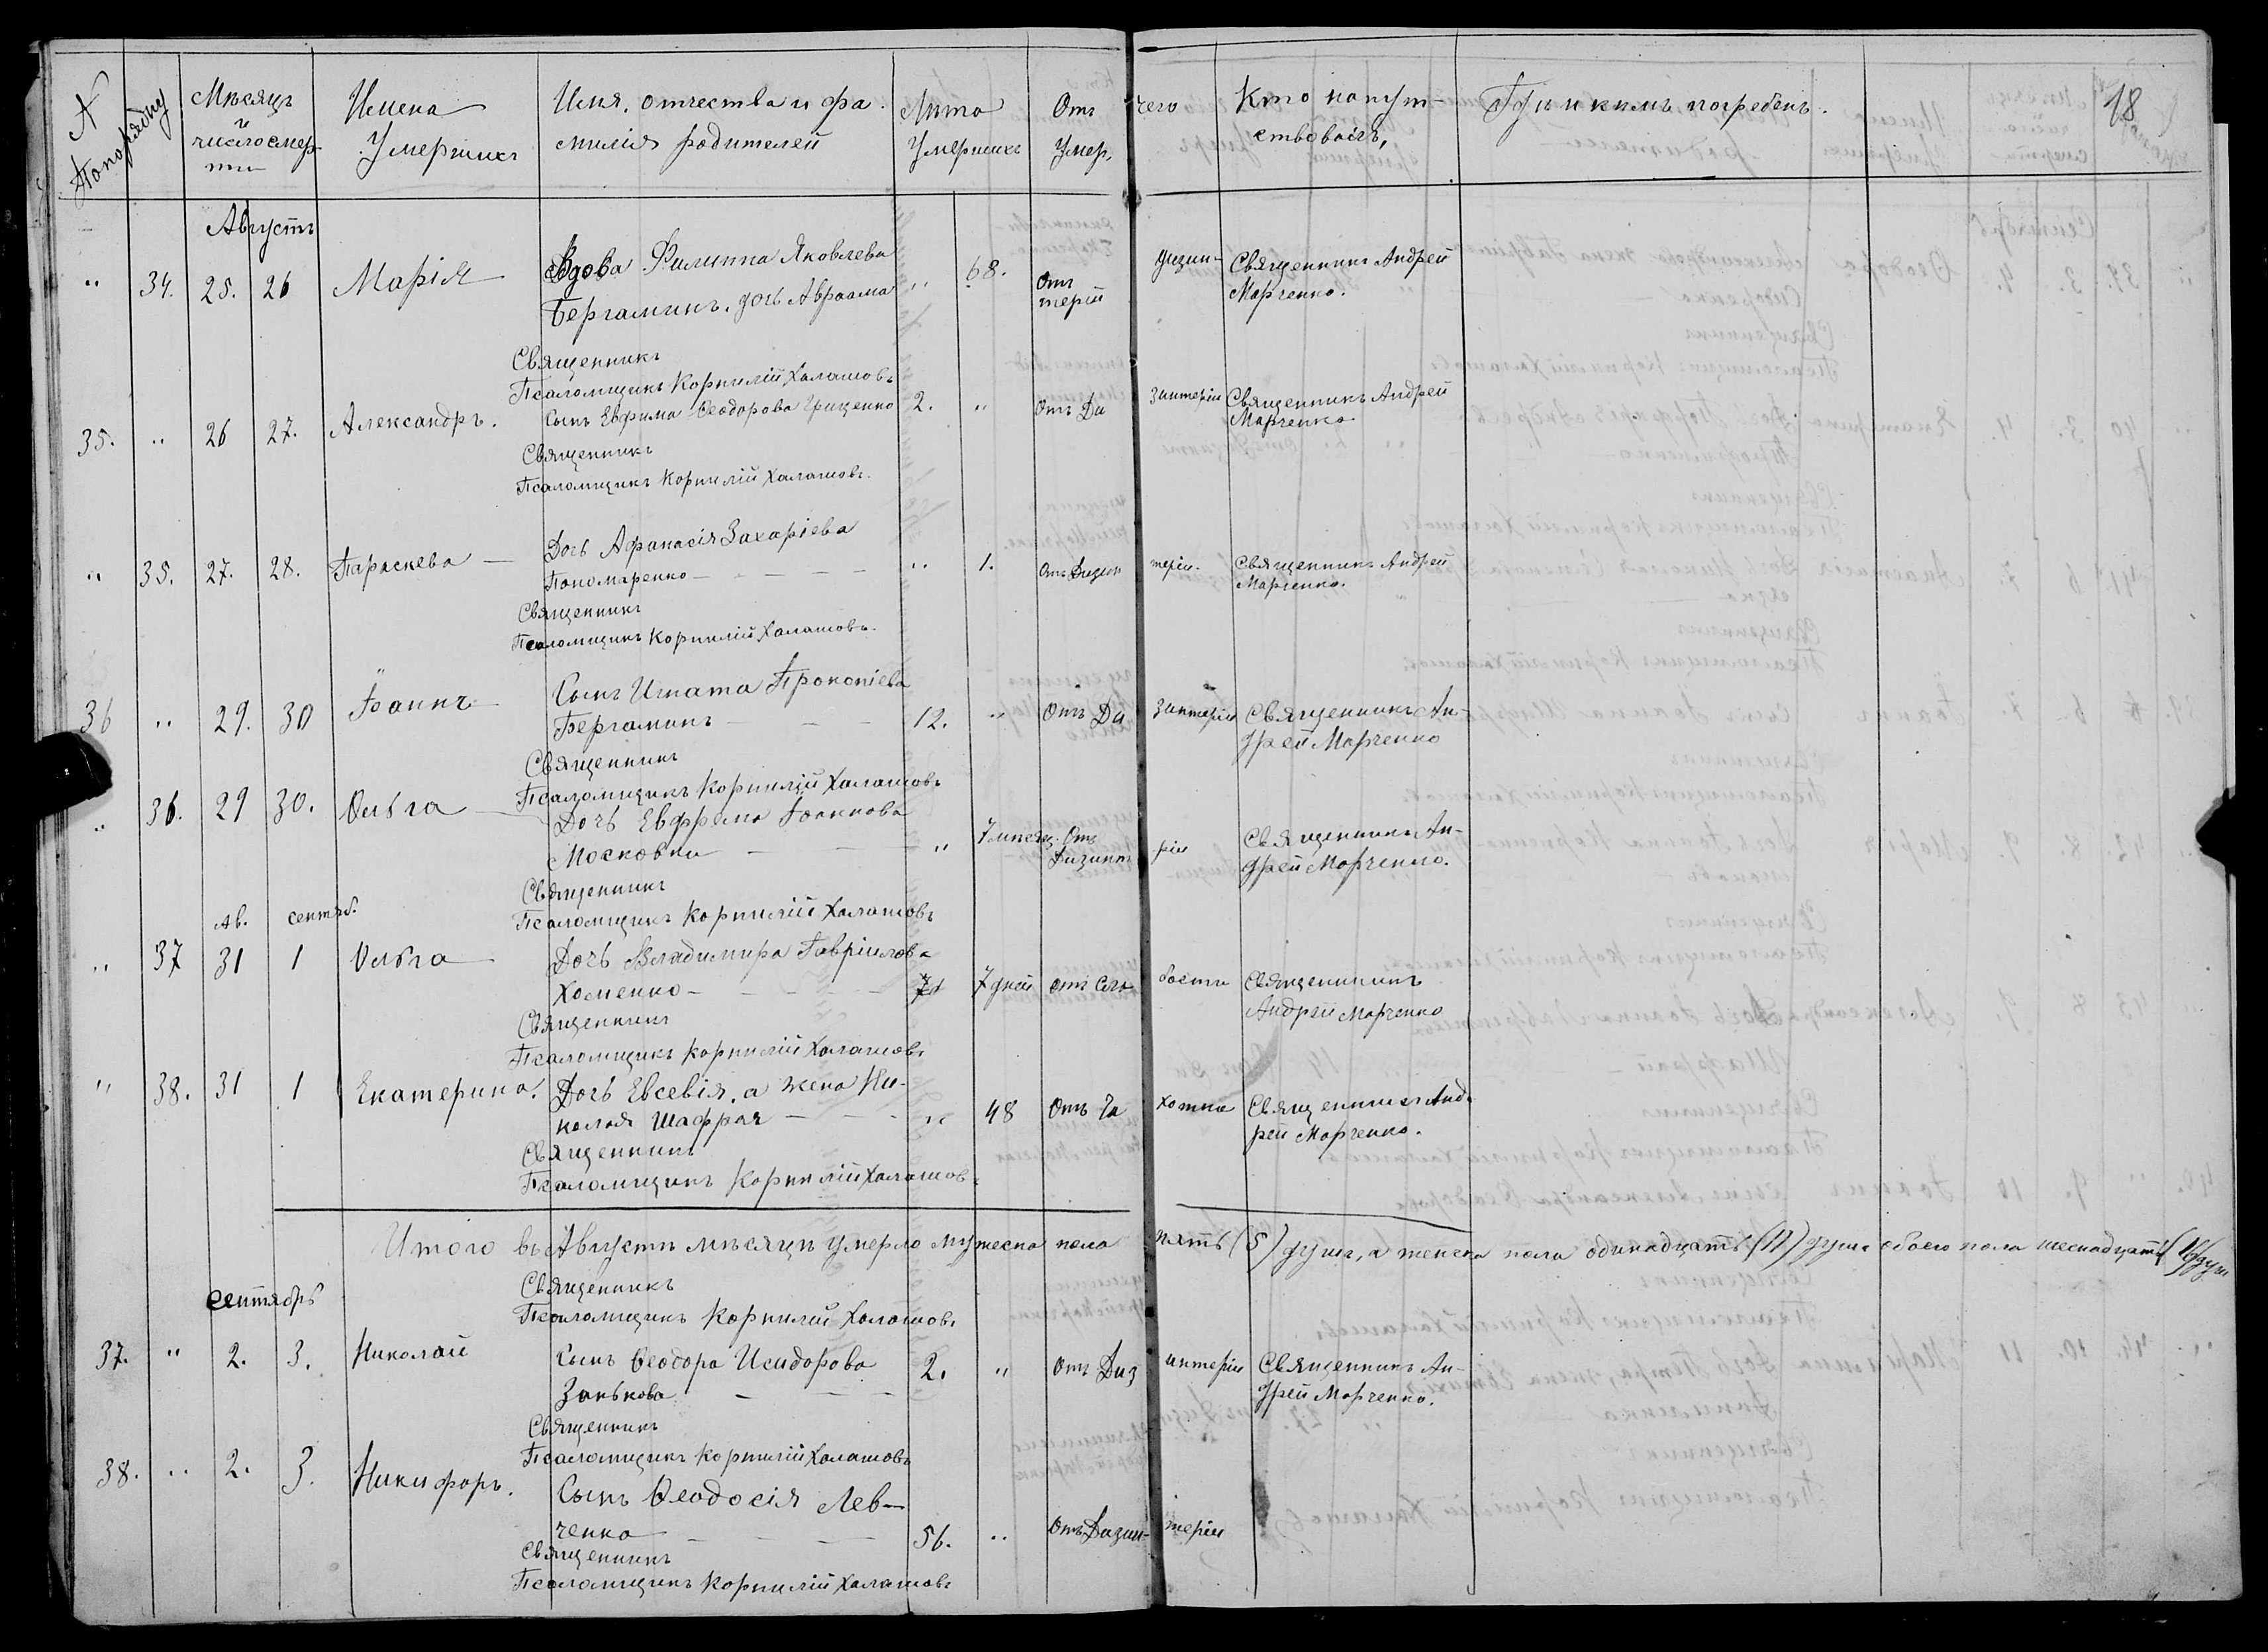 18
№ По порядку
Мѣсяцъ и число смерти
Имена Умершихъ
Имя, отчества и фамилія родителей
Лѣта Умершихъ
Отъ чего Умер.
Кто напутствовалъ,
Гдѣ и кѣмъ погребенъ.
Августъ
" 34. 25. 26 Марія Вдова Филиппа Яковлева " 68. Отъ дизин- Священникъ Андрей
Бергаминъ, дочь Авраама терiи Марченко.
Священникъ
Псаломщикъ Корнилій Халашовъ
35. " 26 27. Александръ. Сынъ Евфима Ѳеодорова Гриценко 2. " Отъ Ди зинтеріи Священникъ Андрей
Марченко
Священникъ
Псаломщикъ Корнилій Халашовъ.
" 35. 27. 28. Параскева Дочь Афанасія Захаріева " 1. Отъ Дизен теріи. Священникъ Андрей
Пономаренко Марченко.
Священникъ
Псаломщикъ Корнилій Халашовъ.
36 " 29. 30 Іоаннъ Сынъ Игната Прокопіева
Бергаминъ 12. " Отъ Ди зинтеріи Священникъ Ан-
дрей Марченко
Священникъ
Псаломщикъ Корнилій Халашовъ
" 36. 29 30. Ольга Дочь Евфрема Іоаннова
Московки " 7 мѣсяц. Отъ Дизинт ріи Священникъ Ан-
дрей Марченко.
Священникъ
Псаломщикъ Корнилій Халашовъ
Ав. сентяб.
" 37 31 1 Ольга Дочь Владимира Гавріилова
Хоменко 7 дней отъ сла бости Священникъ
Андрей Марченко
Священникъ
Псаломщикъ Корнилій Халашовъ
" 38. 31 1 Екатерина. Дочь Евсевія, а жена Ни-
колая Шафрая " 48 Отъ Ча хотки Священникъ Анд-
рей Марченко.
Священникъ
Псаломщикъ Корнилій Халашовъ
Итого въ Августѣ мѣсяцѣ умерло мужеска пола пять (5) душъ, а женска пола одинадцать (11) душъ обоего пола шеснадцать (16) душ
Сентябрь
Священникъ
Псаломщикъ Корнилій Халашовъ
37. " 2. 3. Николай Сынъ Ѳеодора Исидорова 2. " Отъ Диз интеріи Священникъ Ан-
Занькова дрей Марченко.
Священникъ
Псаломщикъ Корнилій Халашовъ
38. " 2. 3. Никифоръ. Сынъ Ѳеодосія Лев-
ченко 56. " Отъ Дизин- теріи
Священникъ
Псаломщикъ Корнилій Халашовъ